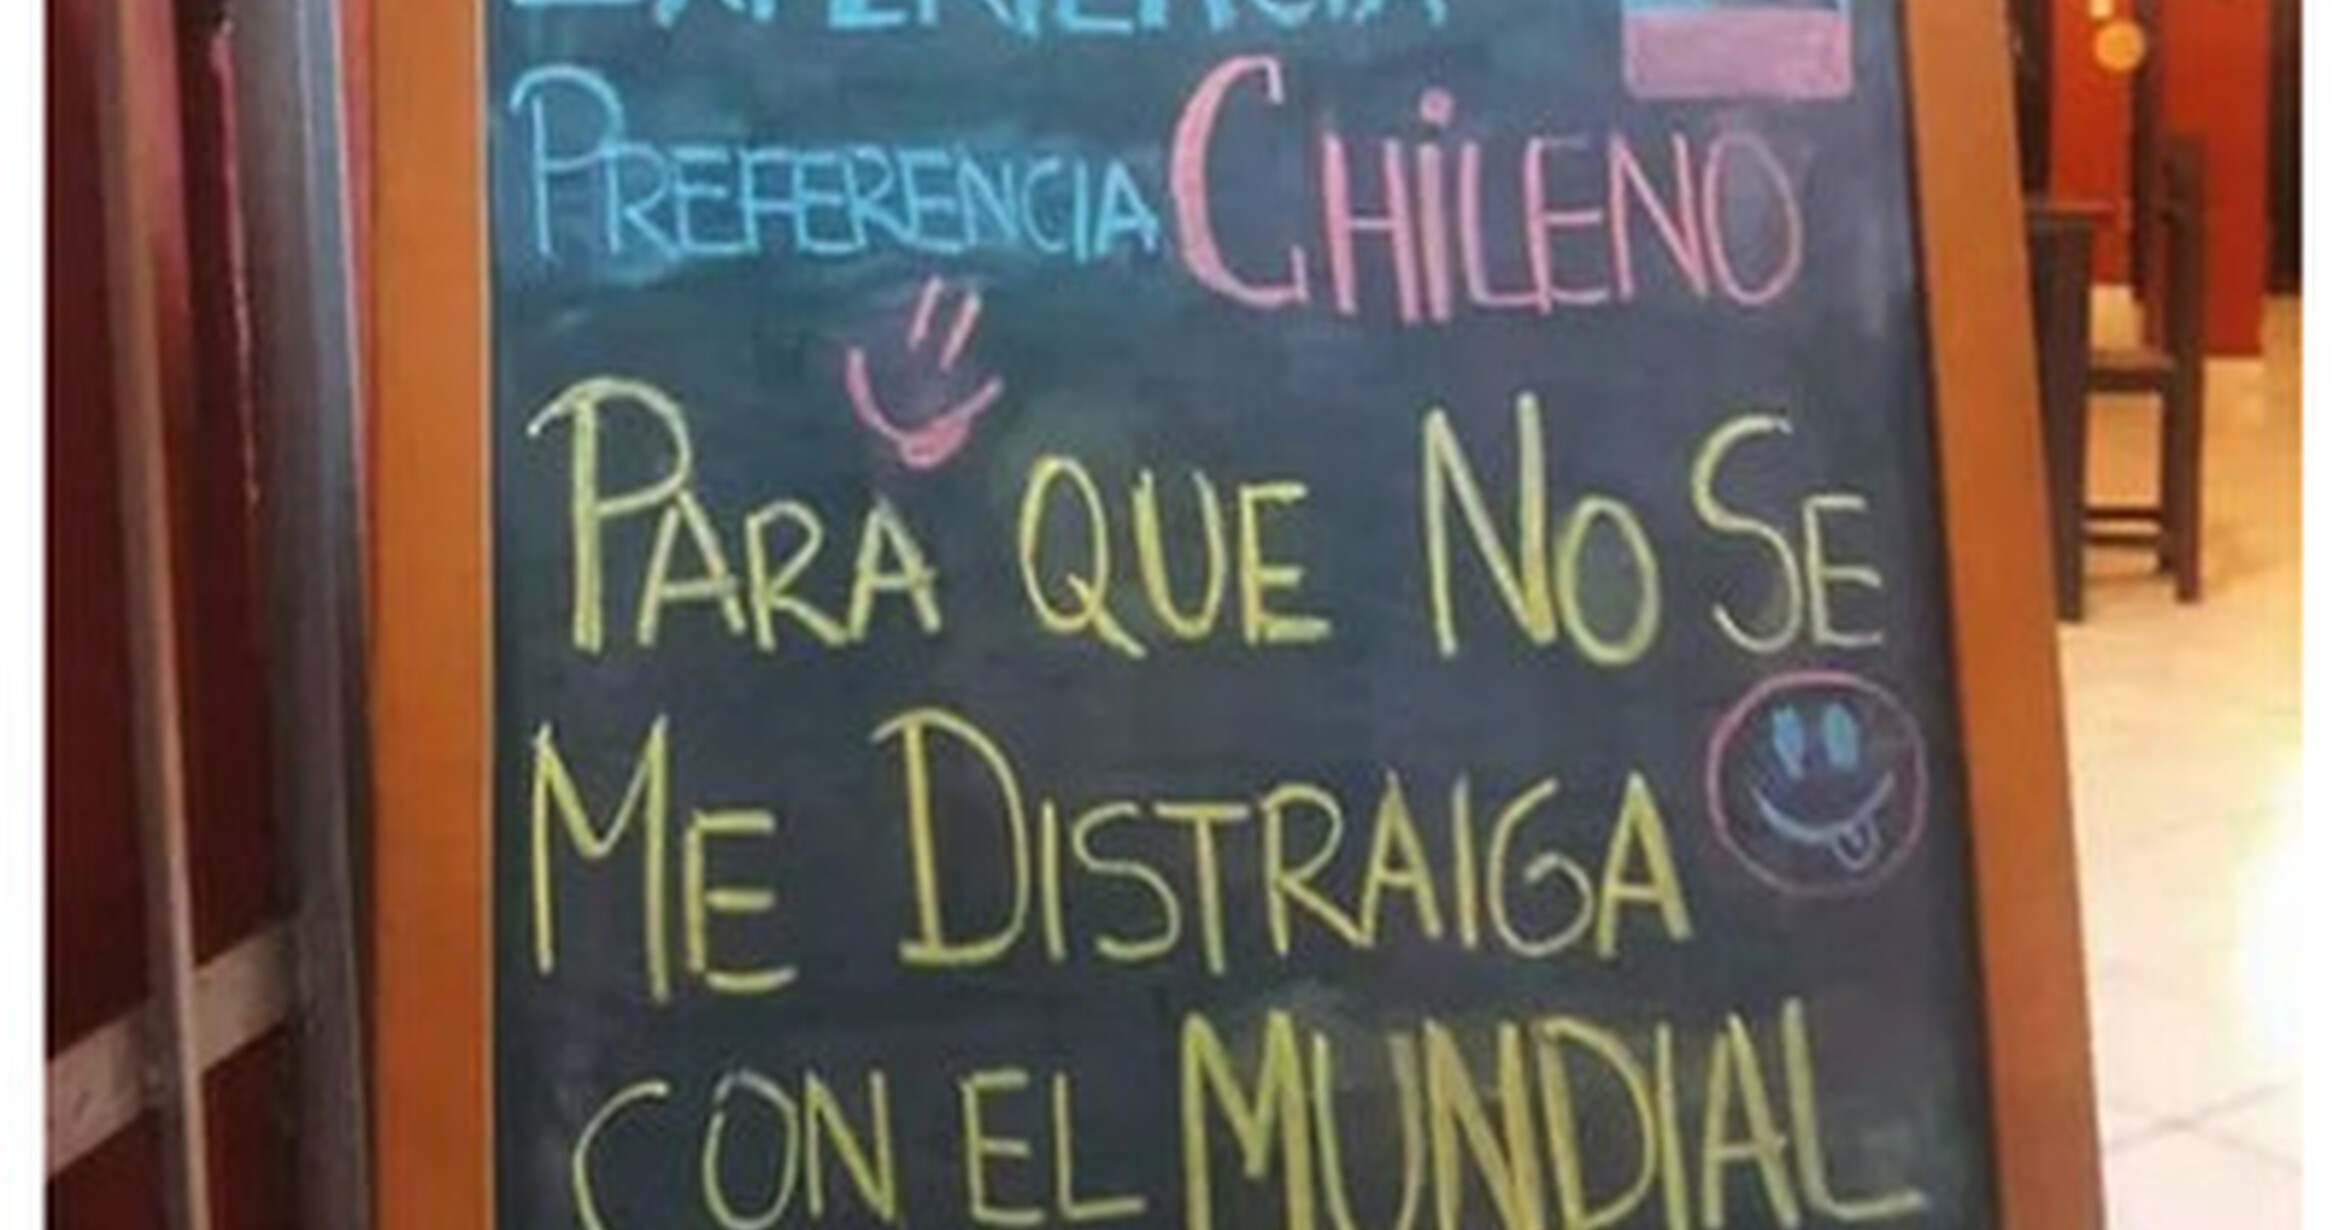 EXPERIENCIA
PREFERENCIA CHiLENO
PARA QUE NO SE
ME DISTRAIGA
CON EL MUNDIAL